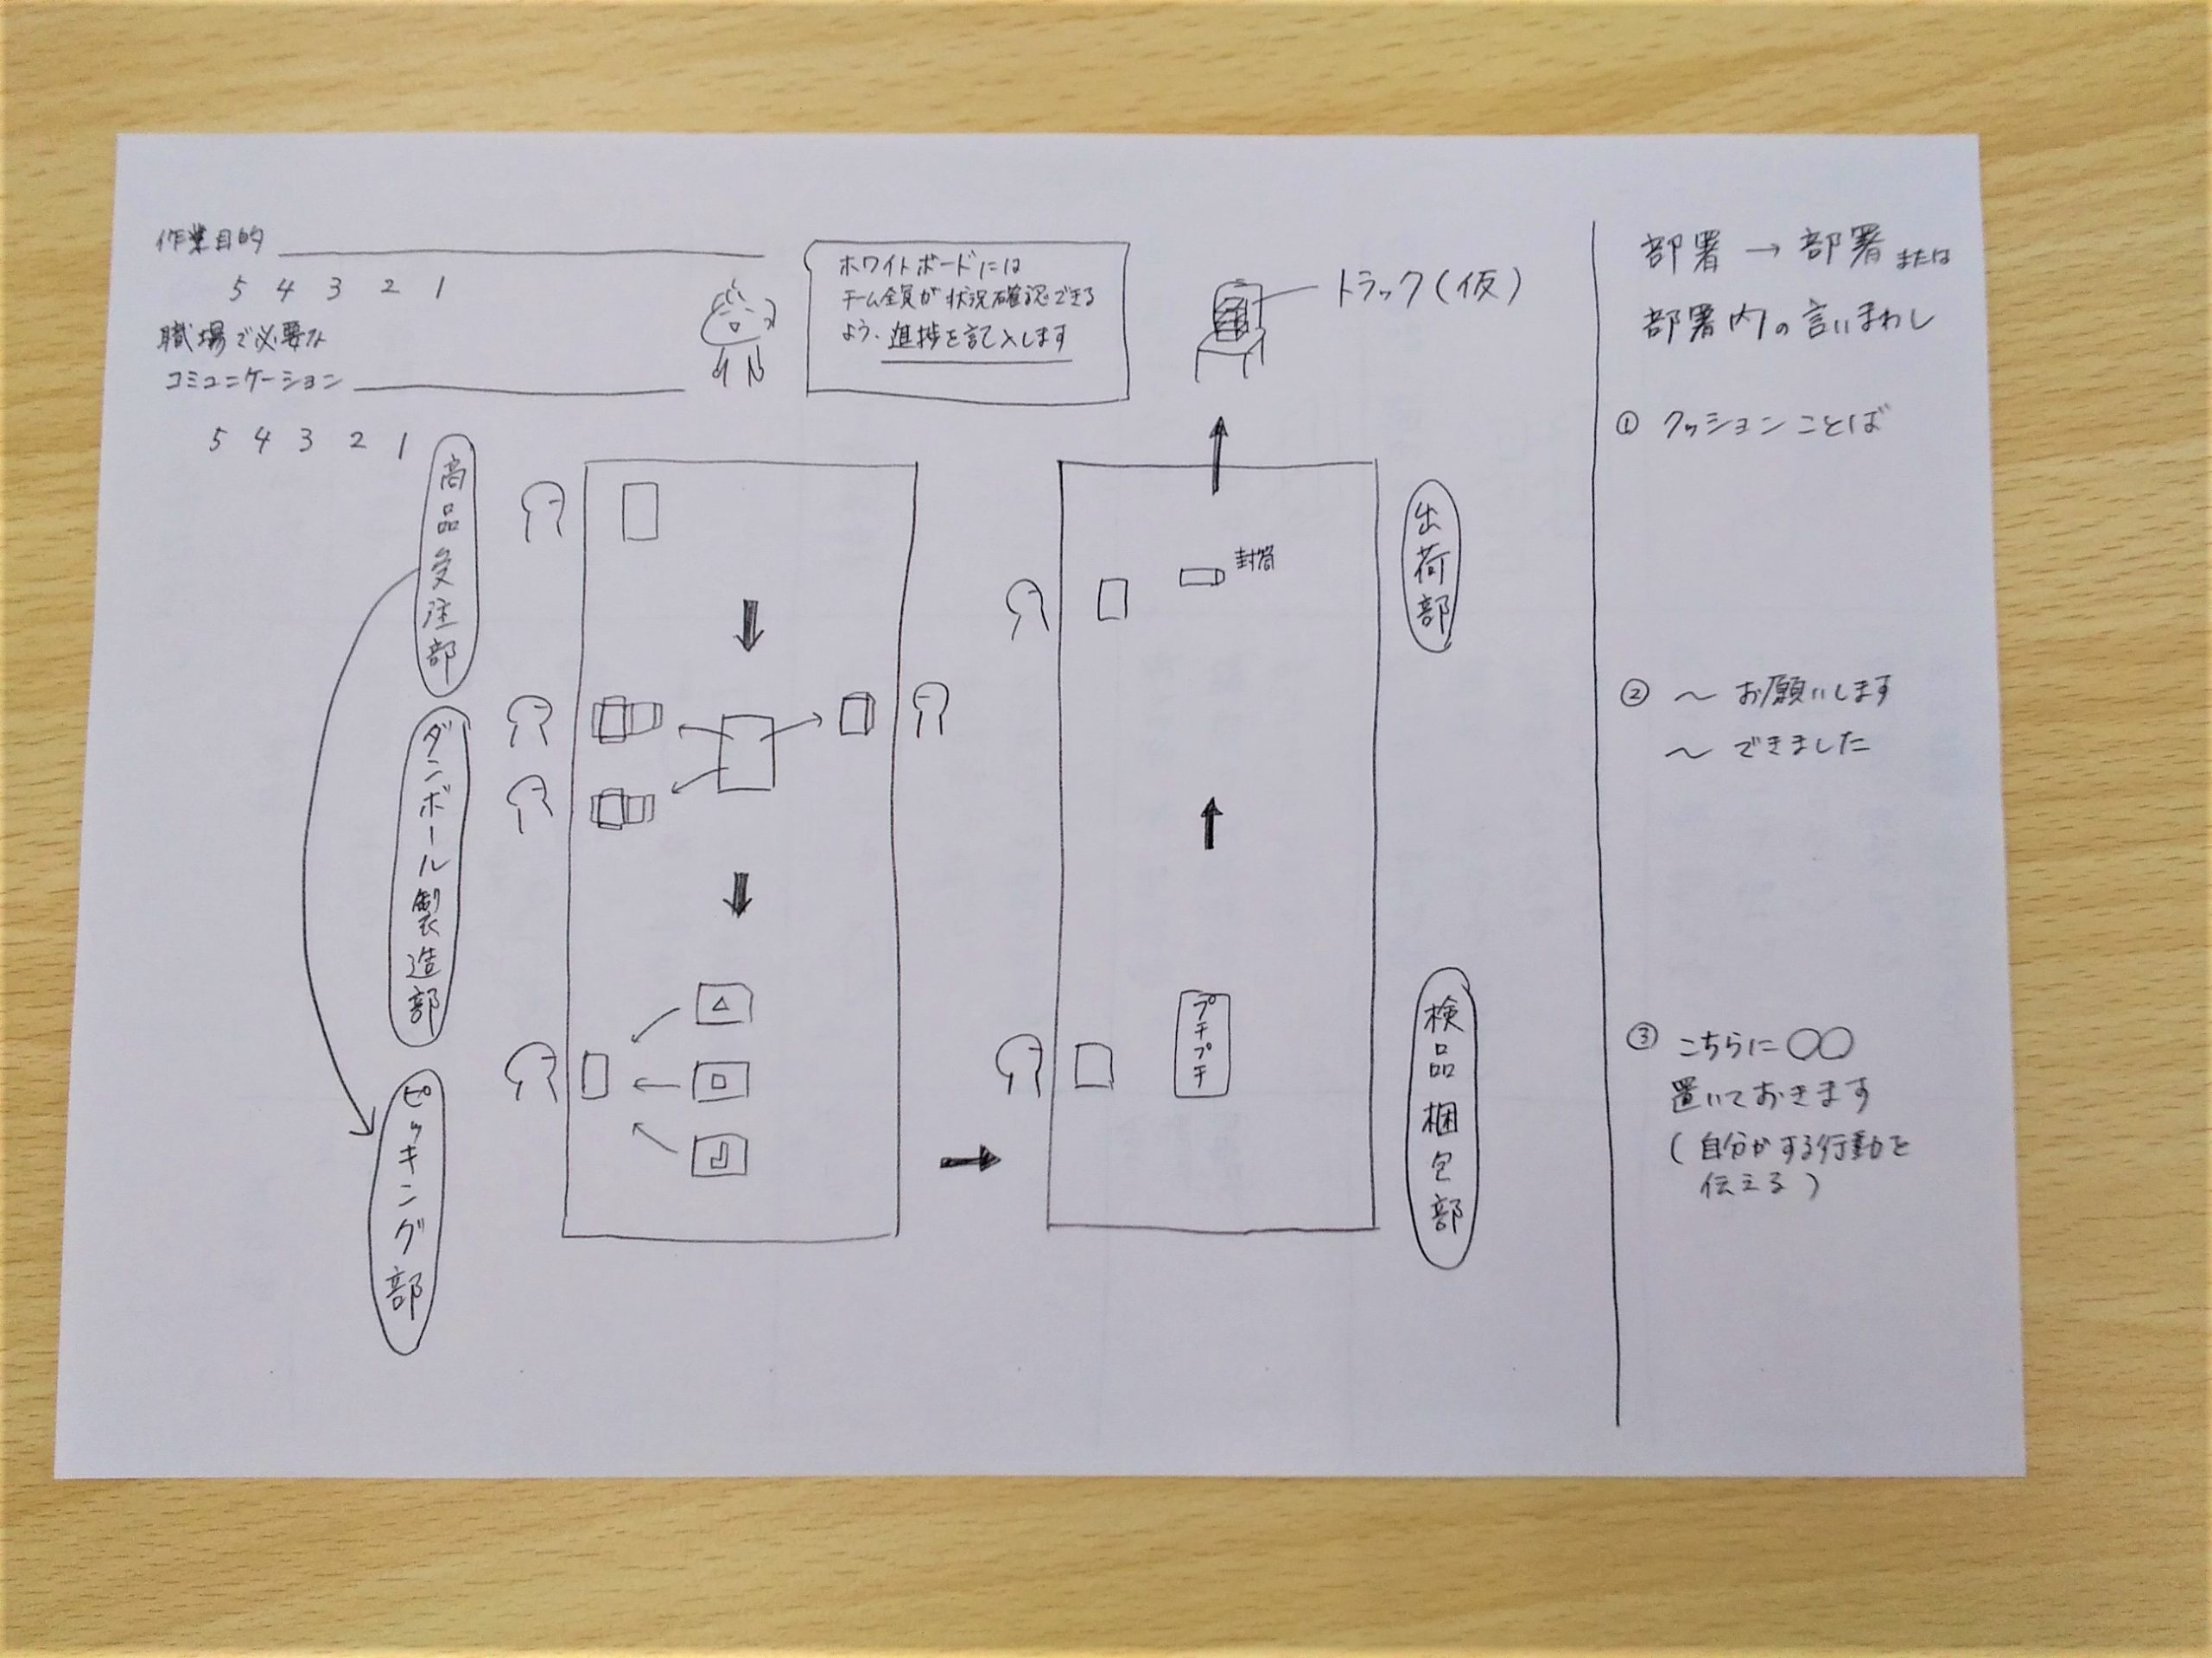 作業目的
5 4 3 2 1
職場で必要な
コミュニケーション
5 4 3 2 1
ホワイトボードには
チーム全員が状況確認できる
よう、進捗を記入します
トラック(仮)
商品受注部
ダンボール製造部
ピッキング部
封筒
プチプチ
出荷部
検品梱包部
部署→部署または
部署内の言いまわし
① クッションことば
② 〜お願いします
〜できました
③ こちらに○○
置いておきます
(自分がする行動を
伝える)